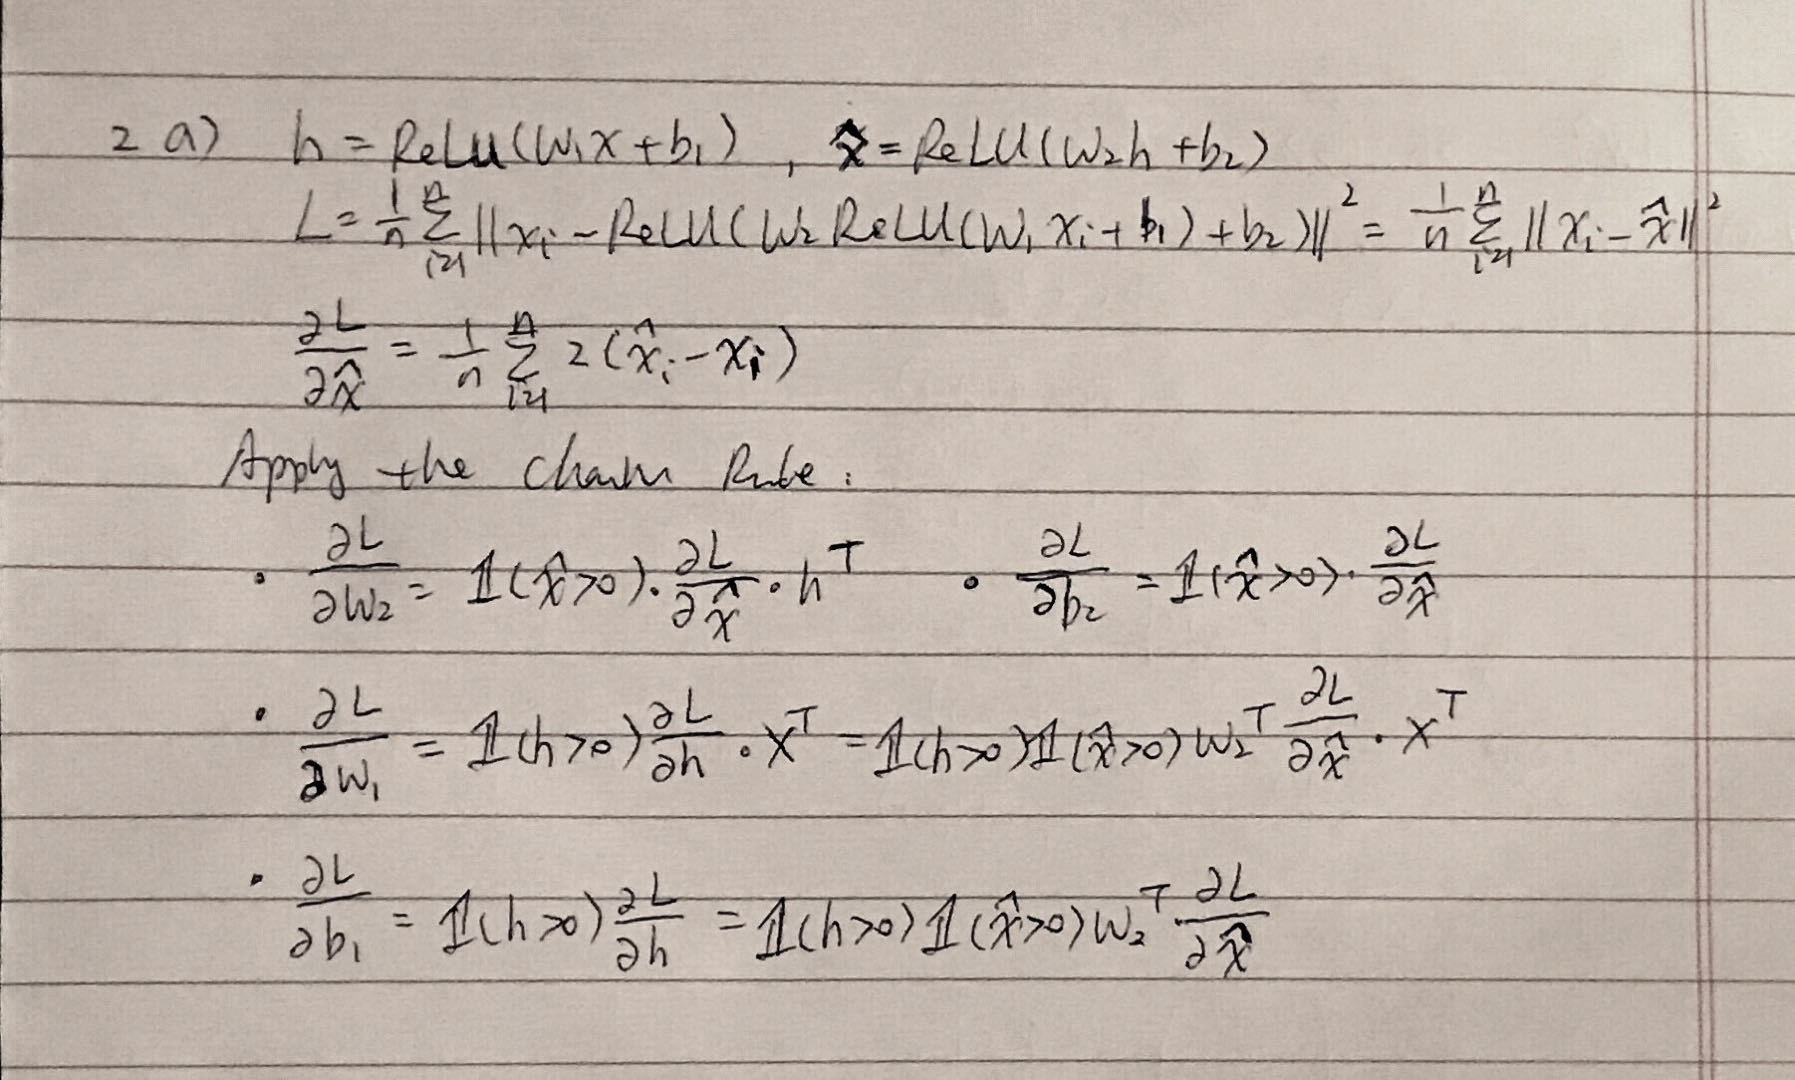 2 a) h = ReLU(W₁x + b₁) , x̂ = ReLU(W₂h + b₂)
L = 1/n Σᵢ₌₁ⁿ ||xᵢ - ReLU(W₂ ReLU(W₁ xᵢ + b₁) + b₂)||² = 1/n Σᵢ₌₁ⁿ ||xᵢ - x̂||²
∂L/∂x̂ = 1/n Σᵢ₌₁ⁿ 2(x̂ᵢ - xᵢ)
Apply the Chain Rule:
• ∂L/∂W₂ = 𝟙(x̂>0) · ∂L/∂x̂ · hᵀ • ∂L/∂b₂ = 𝟙(x̂>0) · ∂L/∂x̂
• ∂L/∂W₁ = 𝟙(h>0) ∂L/∂h · xᵀ = 𝟙(h>0)𝟙(x̂>0) W₂ᵀ ∂L/∂x̂ · xᵀ
• ∂L/∂b₁ = 𝟙(h>0) ∂L/∂h = 𝟙(h>0) 𝟙(x̂>0) W₂ᵀ · ∂L/∂x̂